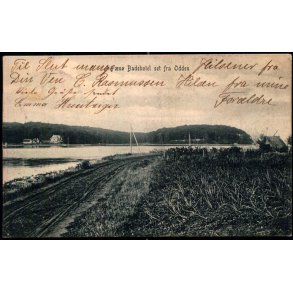 Fænø Badehotel set fra Odden
Til Slut mange Hilsener fra
Din Ven E. Rasmussen Hilsen fra mine
Forældre
Emma